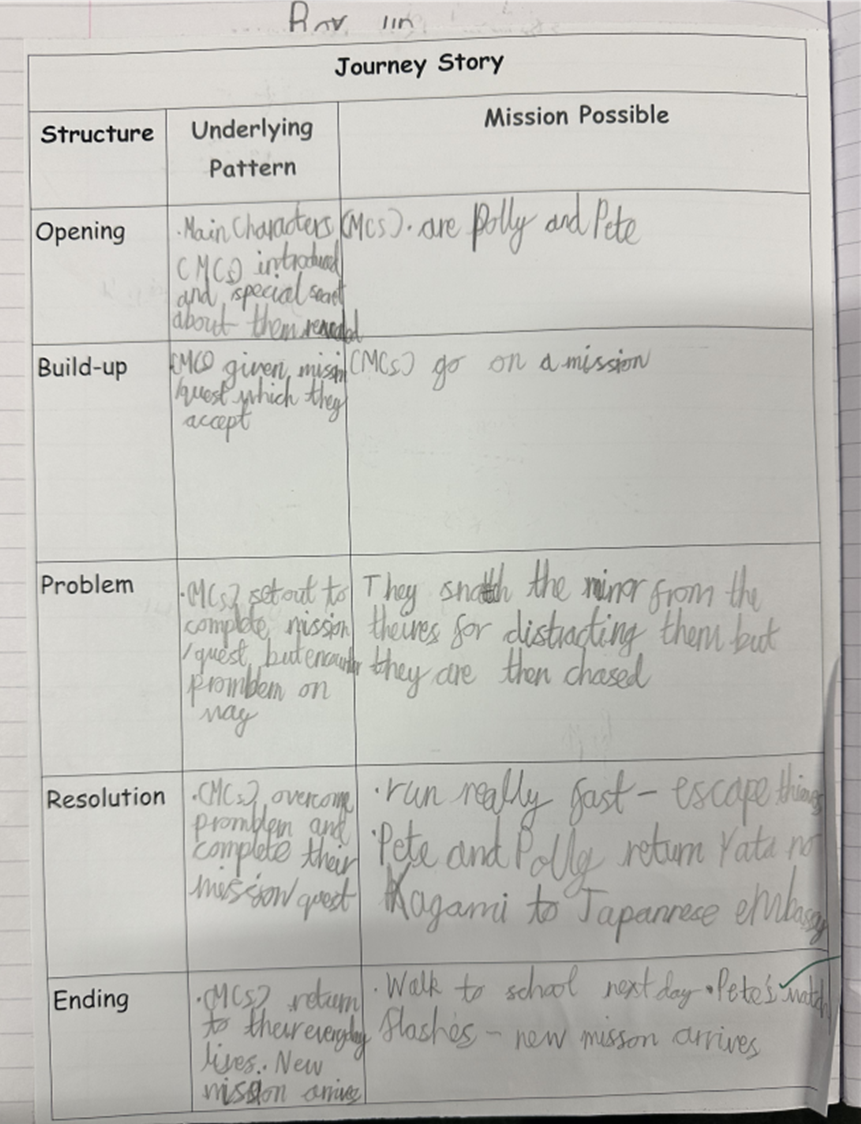 Journey Story
Structure
Underlying
Pattern
Mission Possible
Opening
·Main Characters
(MCs) introduced
and special secret
about them revealed
(MCs). are Polly and Pete
Build-up
(MCs) given mission
/quest which they
accept
(MCs) go on a mission
Problem
·(MCs) set out to
complete mission
/quest, but encounter
promblem on
way
They snatch the mirror from the
theives for distracting them but
they are then chased
Resolution
·(MCs) overcome
promblem and
complete their
mission/quest
·run really fast – escape
·Pete and Polly return Yata no
Kagami to Japannese embassy
Ending
·(MCs) return
to their everyday
lives. New
mission arrives
·Walk to school next day ·Pete's watch
flashes – new misson arrives